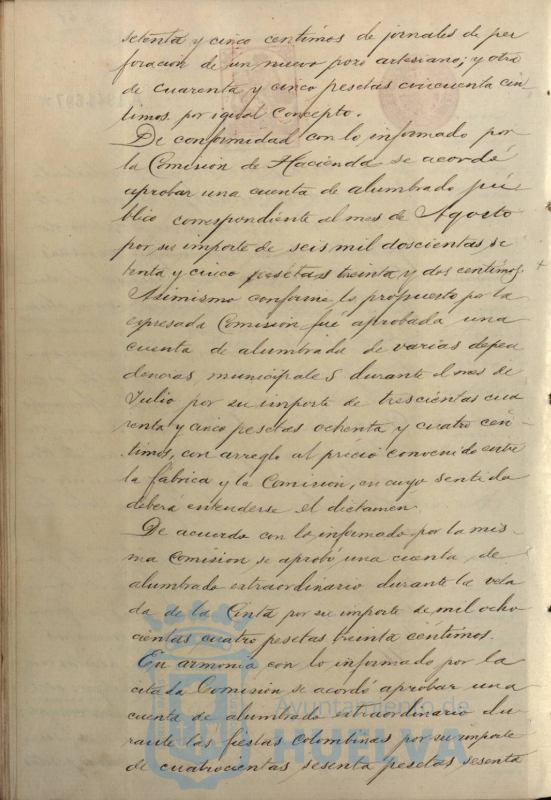 setenta y cinco centimos de jornales de per
foracion de un nuevo pozo artesiano; y otra
de cuarenta y cinco pesetas cincuenta cén
timos por igual concepto.
De conformidad con lo informado por
la Comision de Hacienda se acordó
aprobar una cuenta de alumbrado pú
blico correspondiente al mes de Agosto
por su importe de seis mil doscientas se
tenta y cinco pesetas treinta y dos centimos
Asimismo conforme lo propuesto por la
expresada Comision fué aprobada una
cuenta de alumbrado de varias depen
dencias municipales durante el mes de
Julio por su importe de trescientas cua
renta y cinco pesetas ochenta y cuatro cén-
timos, con arreglo al précio convenido entre
la fábrica y la Comision, en cuyo sentido
deberá entenderse el dictamen.
De acuerdo con lo informado por la mis-
ma Comision se aprobó una cuenta de
alumbrado extraordinario durante la vela
da de la Cinta por su importe de mil ocho
cientas cuatro pesetas treinta céntimos.
En armonia con lo informado por la
citada Comision se acordó aprobar una
cuenta de alumbrado extraordinario du
rante las fiestas Colombinas por su importe
de cuatrocientas sesenta pesetas sesenta
Ayuntamiento de
HUELVA